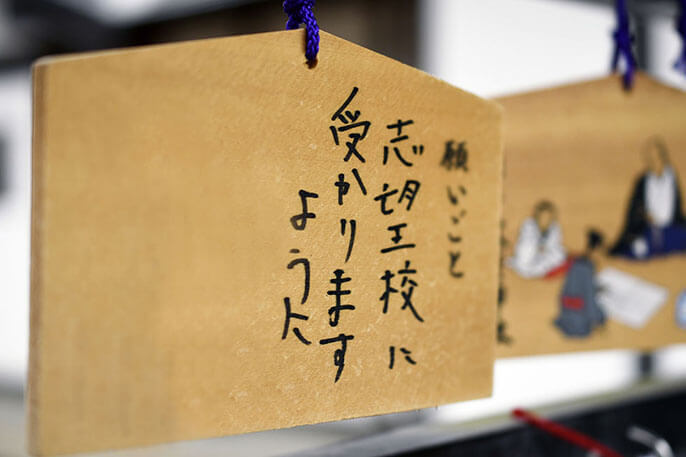 願いごと
志望校に
受かります
ように